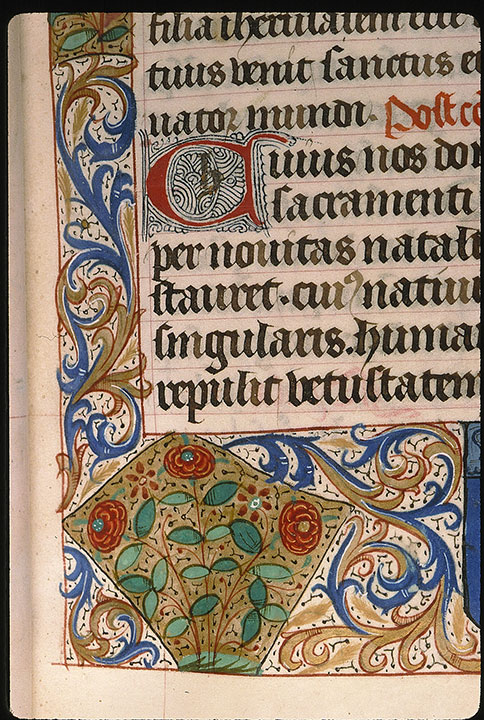 filia iherusalem
tuus venit sanctus
uator mundi. Post
huius nos do
sacramenti
per nouitas natal
stauret. cuiꝰ natiui
singularis. huma
repulit vetustatem